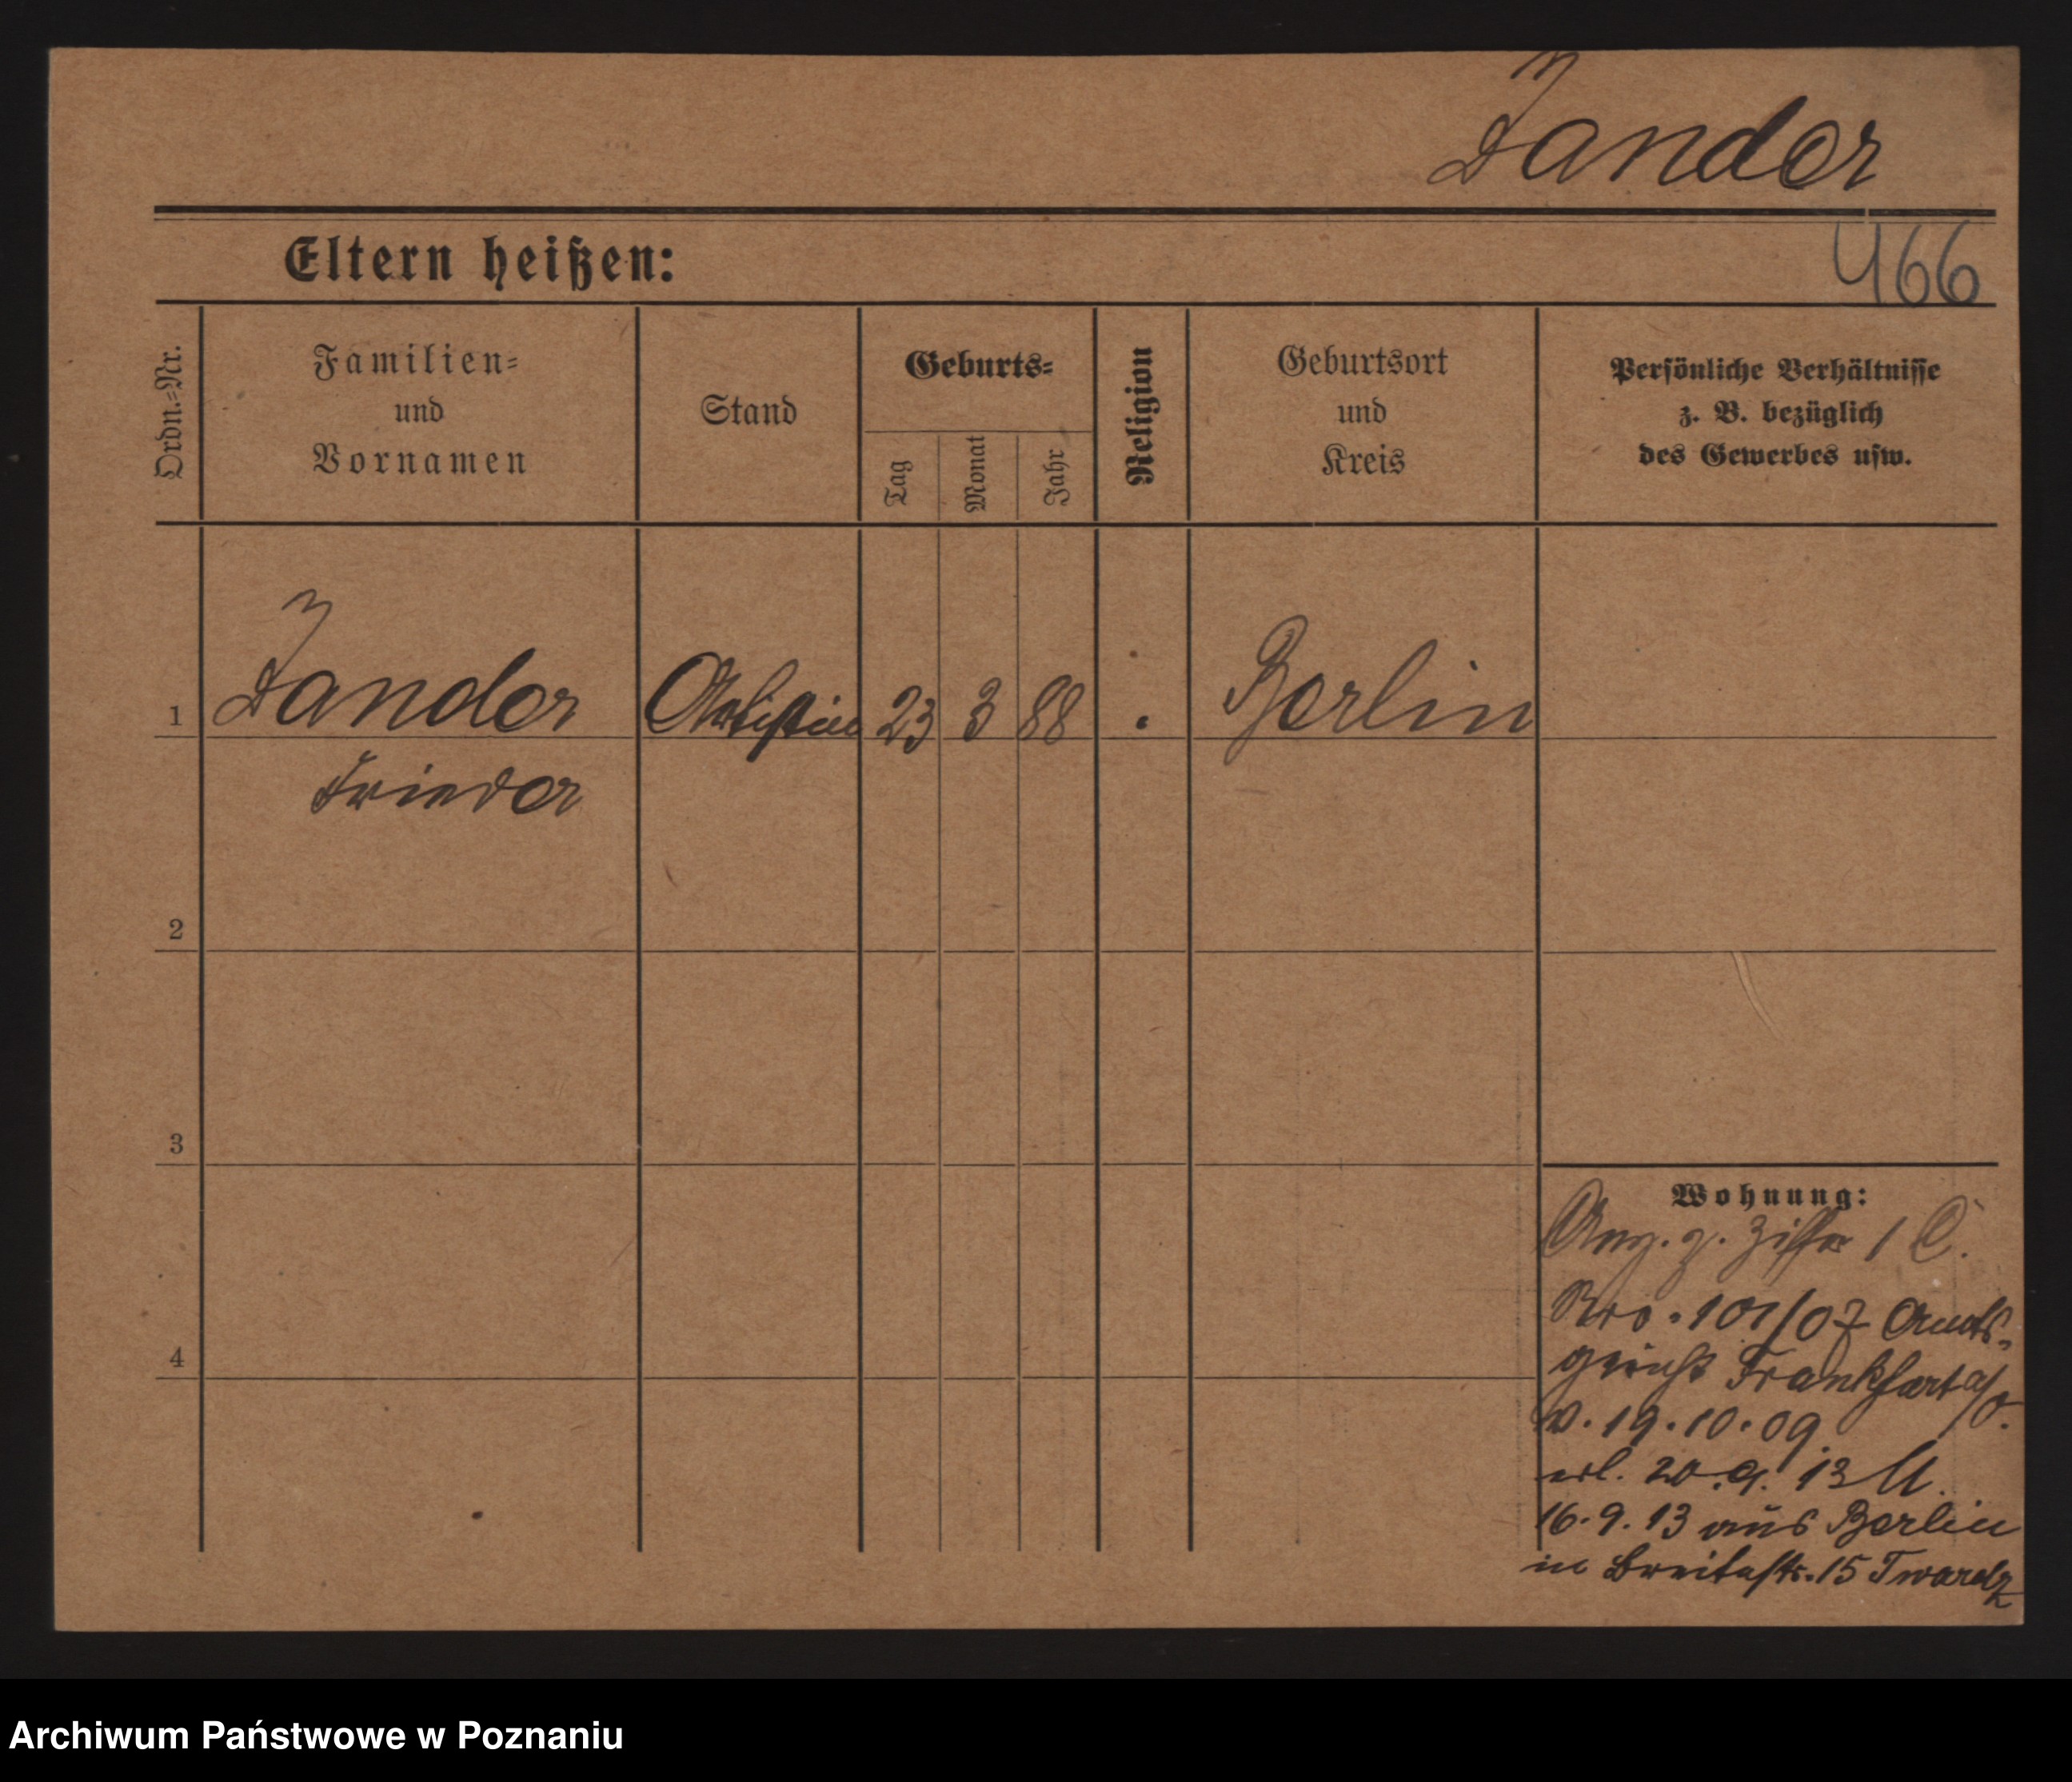 Zander
Eltern heißen:
466
Ordn.-Nr.
Familien-
und
Vornamen
Stand
Geburts-
Tag
Monat
Jahr
Religion
Geburtsort
und
Kreis
Persönliche Verhältnisse
z. B. bezüglich
des Gewerbes usw.
1
Zander
Artistin
23
3
88
Berlin
Frieder
2
3
4
Wohnung:
Ang. z. Ziffer 1 C.
101/07 Amts-
gericht Frankfurt a/O.
v. 19.10.09
erl. 20.9.13
16.9.13 aus Berlin
in Breitestr. 15 Twardz
Archiwum Państwowe w Poznaniu